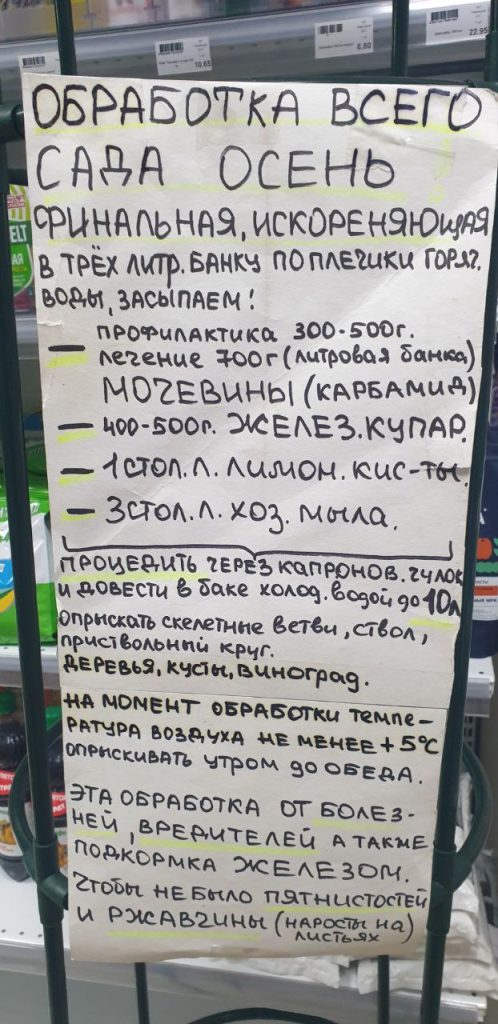 10.65
6.80
22.95
ОБРАБОТКА ВСЕГО
САДА ОСЕНЬ
ФИНАЛЬНАЯ, ИСКОРЕНЯЮЩАЯ
В ТРЁХ ЛИТР. БАНКУ ПО ПЛЕЧИКИ ГОРЯЧ.
ВОДЫ, ЗАСЫПАЕМ!
— ПРОФИЛАКТИКА 300-500г.
лечение 700г (литровая банка)
МОЧЕВИНЫ (КАРБАМИД)
— 400-500г. ЖЕЛЕЗ. КУПАР.
— 1 СТОЛ. Л. ЛИМОН. КИС-ТЫ.
— 3 СТОЛ. Л. ХОЗ. МЫЛА.
ПРОЦЕДИТЬ ЧЕРЕЗ КАПРОНОВ. ЧУЛОК
И ДОВЕСТИ В БАКЕ ХОЛОД. ВОДОЙ ДО 10л
Опрыскать скелетные ветви, ствол,
приствольный круг.
ДЕРЕВЬЯ, КУСТЫ, ВИНОГРАД.
НА МОМЕНТ ОБРАБОТКИ ТЕМПЕ-
РАТУРА ВОЗДУХА НЕ МЕНЕЕ +5°С
ОПРЫСКИВАТЬ УТРОМ ДО ОБЕДА.
ЭТА ОБРАБОТКА ОТ БОЛЕЗ-
НЕЙ, ВРЕДИТЕЛЕЙ А ТАКЖЕ
ПОДКОРМКА ЖЕЛЕЗОМ.
ЧТОБЫ НЕ БЫЛО ПЯТНИСТОСТЕЙ
И РЖАВЧИНЫ (НАРОСТЫ НА)
ЛИСТЬЯХ